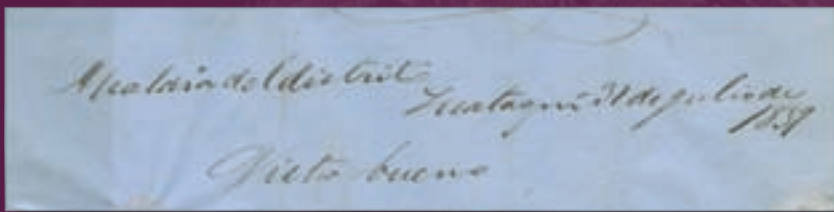 Alcaldia del distrito
Guataquí 31 de julio de
1859
Visto bueno